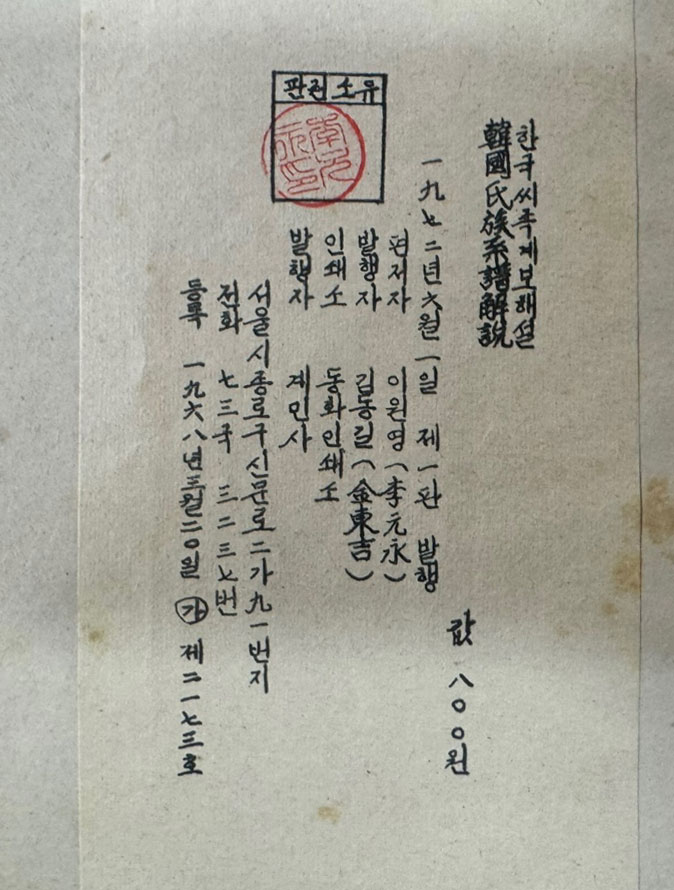 한국씨족계보해설
韓國氏族系譜解說
값 八〇〇원
一九七二년 六월 一일 제一판 발행
편저자 이원영(李元永)
발행자 김동길(金東吉)
인쇄소 동화인쇄소
발행자 계민사
서울시 종로구 신문로 二가 九一번지
전화 七三국 三二三七번
등록 一九六八년 三월 二〇일 ㉮ 제二一七三호
판권 소유